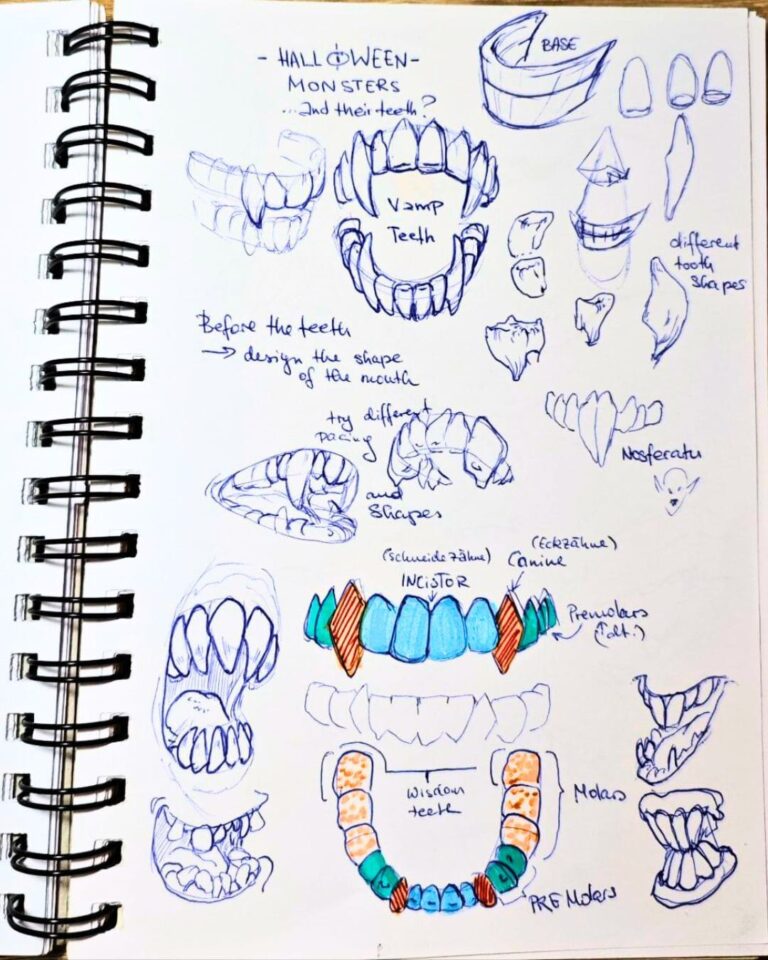 - HALLOWEEN -
MONSTERS
...and their teeth?
BASE
Vamp
Teeth
different
tooth
shapes
Before the teeth
→ design the shape
of the mouth
try different
pacing
and
Shapes
Nosferatu
(Schneidezähne)
INCISTOR
(Eckzähne)
Canine
Premolars
Wisdom
teeth
Molars
PRE Molars